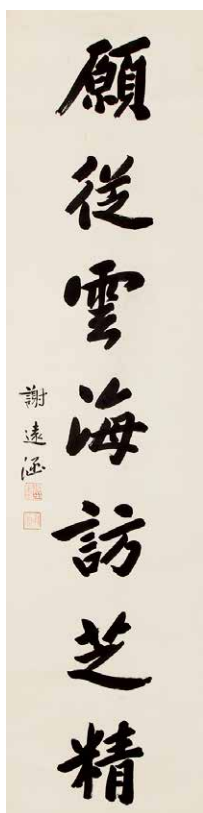 願從雲海訪芝精
謝遠涵